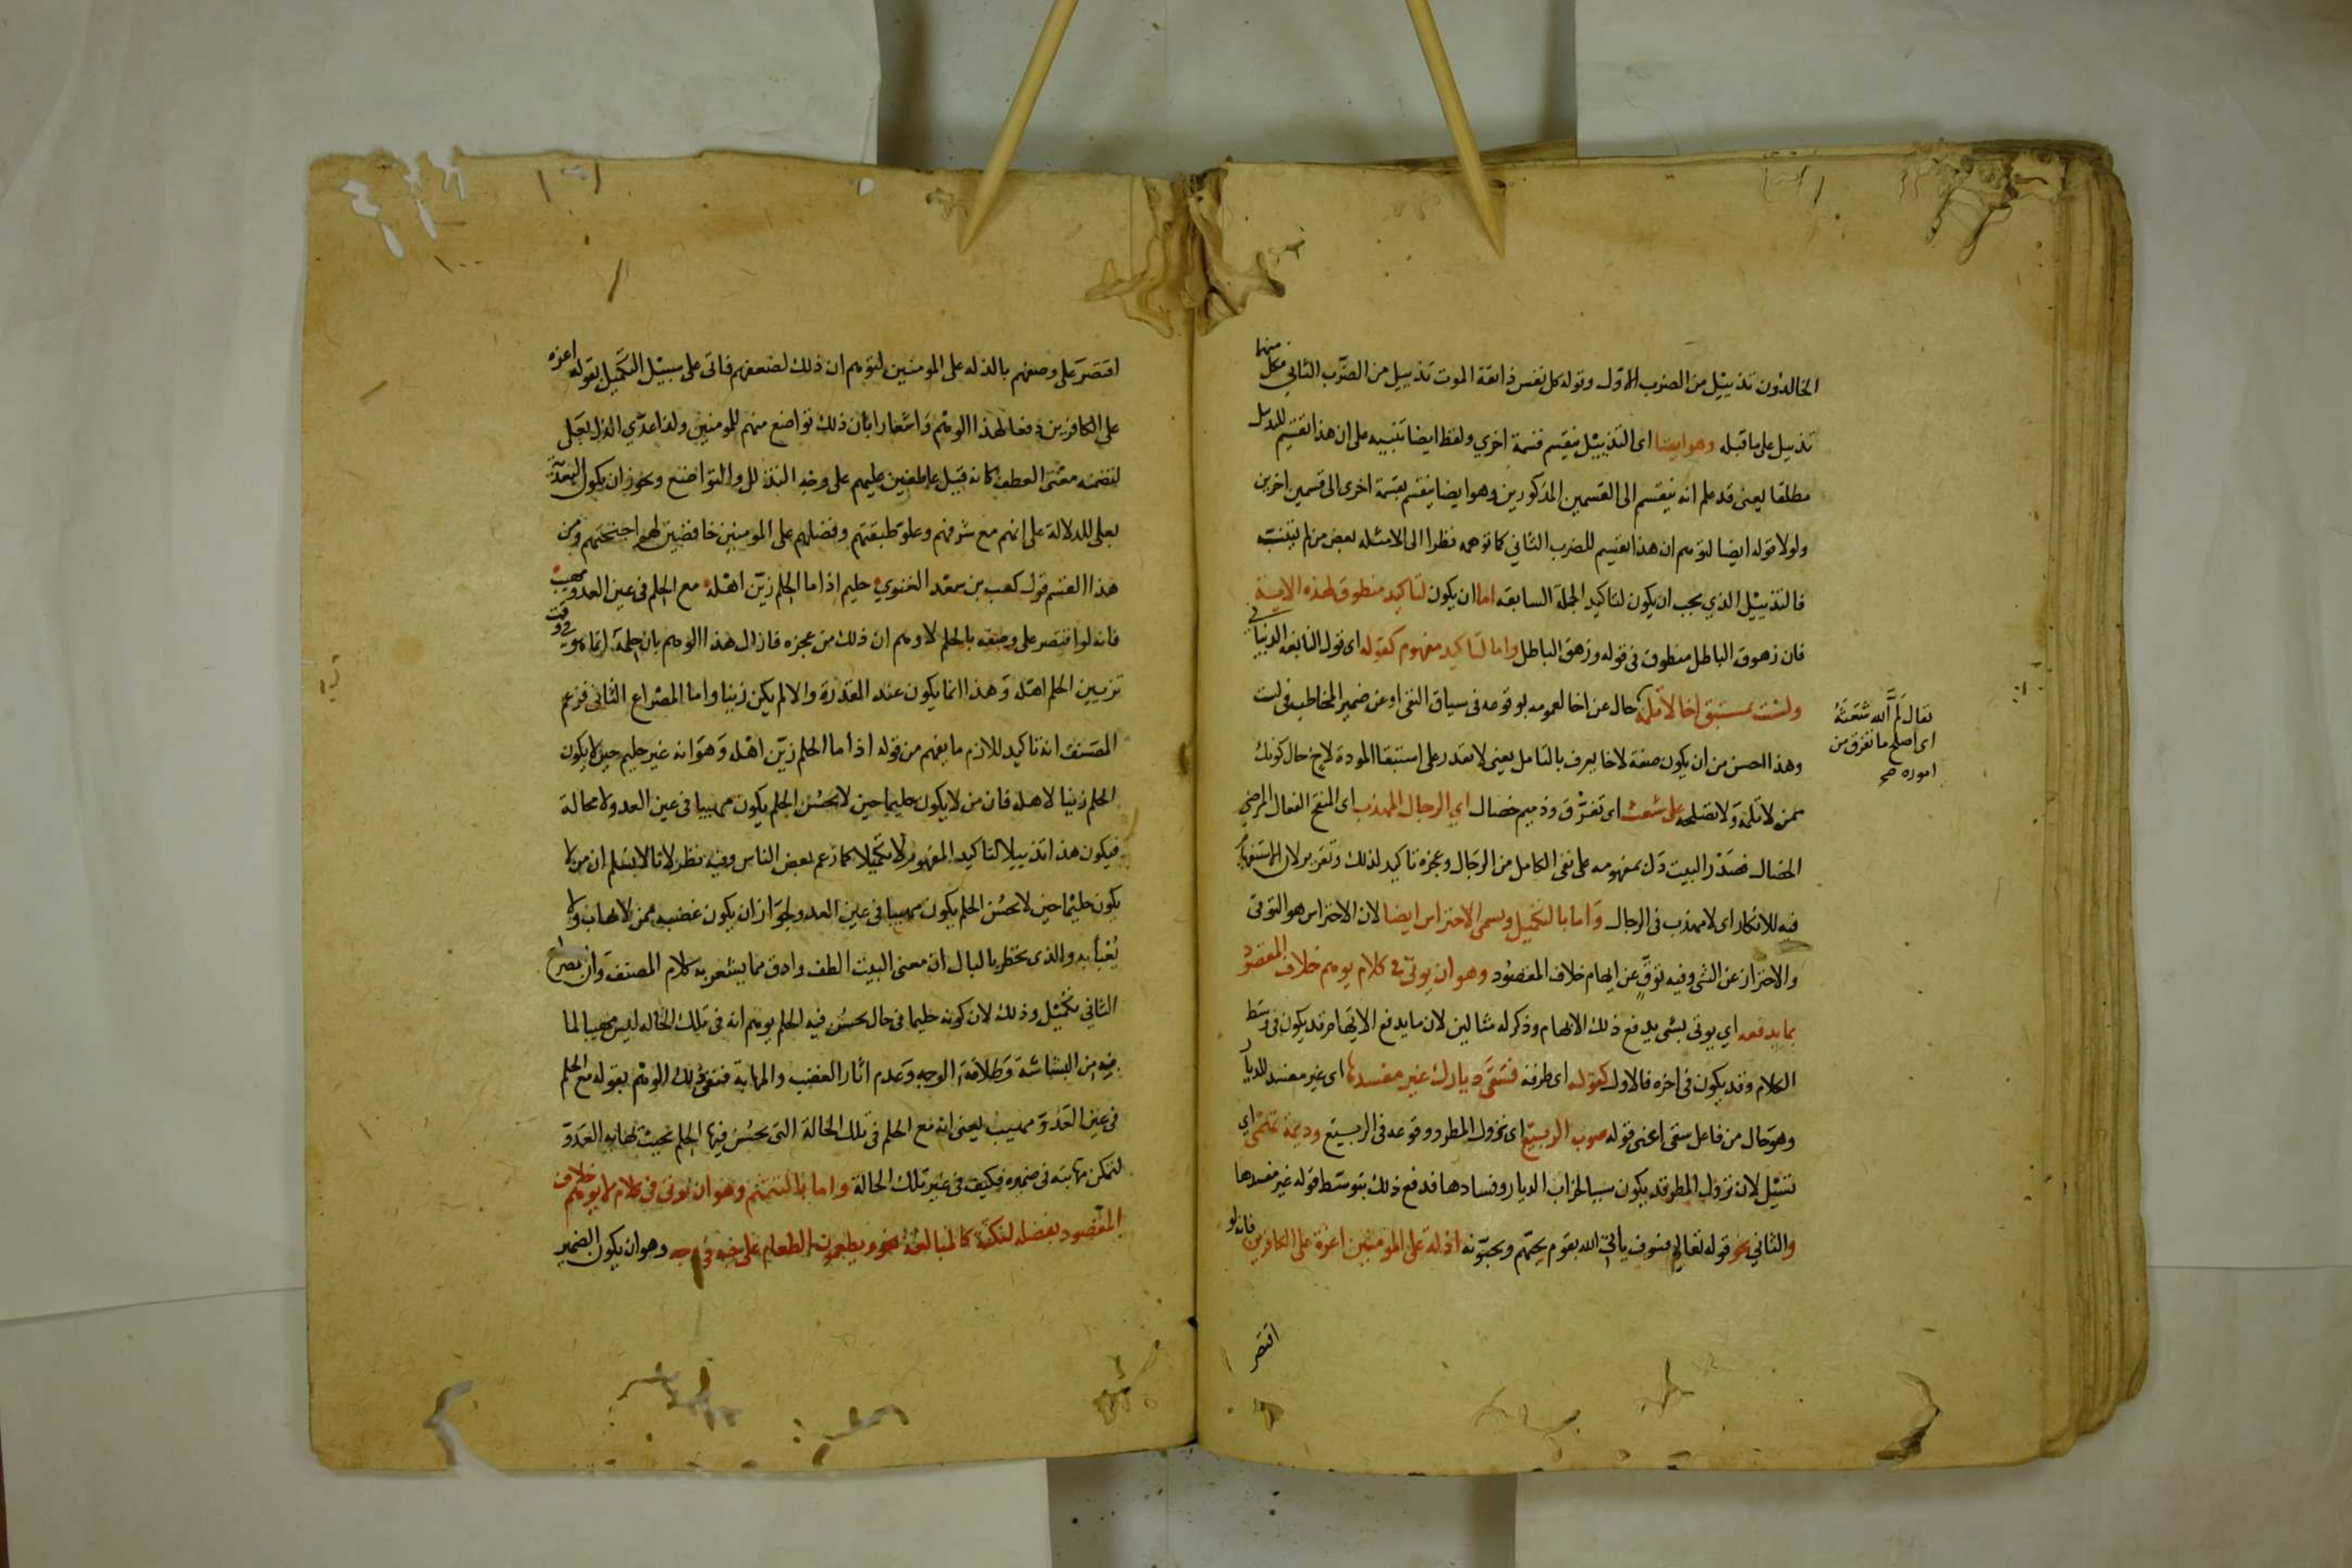 الخالدون تذييل من الضرب الاول وقوله كل نفس ذائقة الموت تذييل من الضرب الثاني فكل منهما
تذييل على ما قبله وهو ايضا اى التذييل ينقسم قسمة اخري ولفظ ايضا تنبيه على ان هذا تقسيم للتذييل
مطلقا يعنى قد علم انه ينقسم الى القسمين المذكورين وهو ايضا ينقسم بقسمة اخرى الى قسمين اخرين
ولولا قوله ايضا لتوهم ان هذا تقسيم للضرب الثاني كما توهمه نظرا الى الامثله بعض من لم يتنبه
فالتذييل الذي يجب ان يكون لتاكيد الجملة السابقه اما ان يكون لتاكيد منطوق لهذه الاية
فان زهوق الباطل منطوق فى قوله وزهق الباطل واما لتاكيد مفهوم كقوله اى قول النابغه الذبياني
ولست بمستبق اخا لا تلمه حال عن اخا لعمومه بوقوعه فى سياق النفى او عن ضمير المخاطب فى لست
وهذا احسن من ان يكون صفة لاخا يعرف بالتامل يعنى لا تقدر على استبقا المودة لاخ حال كونك
ممن لا تلمه ولا تصلحه على شعث اى تفرق وذميم خصال اي الرجال المهذب اى المنقح الفعال المرضي
الخصال فصدر البيت دل بمفهومه على نفى الكامل من الرجال وعجزه تاكيد لذلك وتقرير لان الاستفهام
فيه للانكار اى لا مهذب فى الرجال واما بالتكميل ويسمى الاحتراس ايضا لان الاحتراس هو التوقى
والاحتراز عن الشى وفيه توقٍ عن ايهام خلاف المقصود وهو ان يوتى فى كلام يوهم خلاف المقصود
بما يدفعه اي يوتى بشى يدفع ذلك الايهام وذكر له مثالين لان ما يدفع الايهام قد يكون فى وسط
الكلام وقد يكون فى اخره فالاول كقوله اى طرفة فسقى ديارك غير مفسدها اى غير مفسد للديار
وهو حال من فاعل سقى اعنى قوله صوب الربيع اى نزول المطر ووقوعه فى الربيع وديمة تهمى اي
تسيل لان نزول المطر قد يكون سببا لخراب الديار وفسادها فدفع ذلك بتوسط قوله غير مفسدها
والثاني نحو قوله تعالى فسوف ياتى الله بقوم يحبهم ويحبونه اذلة على المومنين اعزة على الكافرين فانه لو
اقتصر
يقال لَمَّ الله شَعَثَهُ
اى اصلح ما تفرق من
اموره صح
اقتصر على وصفهم بالذله على المومنين لتوهم ان ذلك لضعفهم فاتى على سبيل التكميل بقوله اعزه
على الكافرين دفعا لهذا الوهم واشعارا بان ذلك تواضع منهم للمومنين ولذا عدّي الذل بعلى
لتضمنه معنى العطف كانه قيل عاطفين عليهم على وجه التذلل والتواضع ويجوز ان يكون التعدية
بعلى للدلالة على انهم مع شرفهم وعلو طبقتهم وفضلهم على المومنين خافضين لهم اجنحتهم ومن
هذا القسم قول كعب بن سعد الغنوي حليم اذا ما الحلم زيّن اهله مع الحلم فى عين العدو مهيب
فانه لو اقتصر على وصفه بالحلم لاوهم ان ذلك من عجزه فازال هذا الوهم بان حلمه انما هو فى وقت
تزيين الحلم اهله وهذا انما يكون عند القدرة والا لم يكن زينا واما المصراع الثانى فزعم
المصنف انه تاكيد للازم ما يفهم من قوله اذا ما الحلم زيّن اهله وهو انه غير حليم حين لا يكون
الحلم زينا لاهله فان من لا يكون حليما حين لا يحسن الحلم يكون مهيبا فى عين العدو لا محالة
فيكون هذا تذييلا لتاكيد المفهوم لا تكميلا كما زعم بعض الناس وفيه نظر لانا لا نسلم ان من لا
يكون حليما حين لا يحسن الحلم يكون مهيبا فى عين العدو لجواز ان يكون غضبه ممن لا يهاب ولا
يُعْبَأ به والذى يخطر بالبال ان معنى البيت الطف وادق مما يشعر به كلام المصنف وان المصراع
الثاني تكميل وذلك لان كونه حليما فى حال يحسن فيه الحلم يوهم انه فى تلك الحاله ليس مهيبا لما
به من البشاشة وطلاقة الوجه وعدم اثار الغضب والمهابة فنفى ذلك الوهم بقوله مع الحلم
فى عين العدو مهيب يعنى انه مع الحلم فى تلك الحالة التى يحسن فيها الحلم بحيث يهابه العدو
لتمكن مهابته فى ضميره فكيف فى غير تلك الحالة واما بالتتميم وهو ان يوتى فى كلام لا يوهم خلاف
المقصود بفضله لنكتة كالمبالغة نحو ويطعمون الطعام على حبه فى وجه وهو ان يكون الضمير